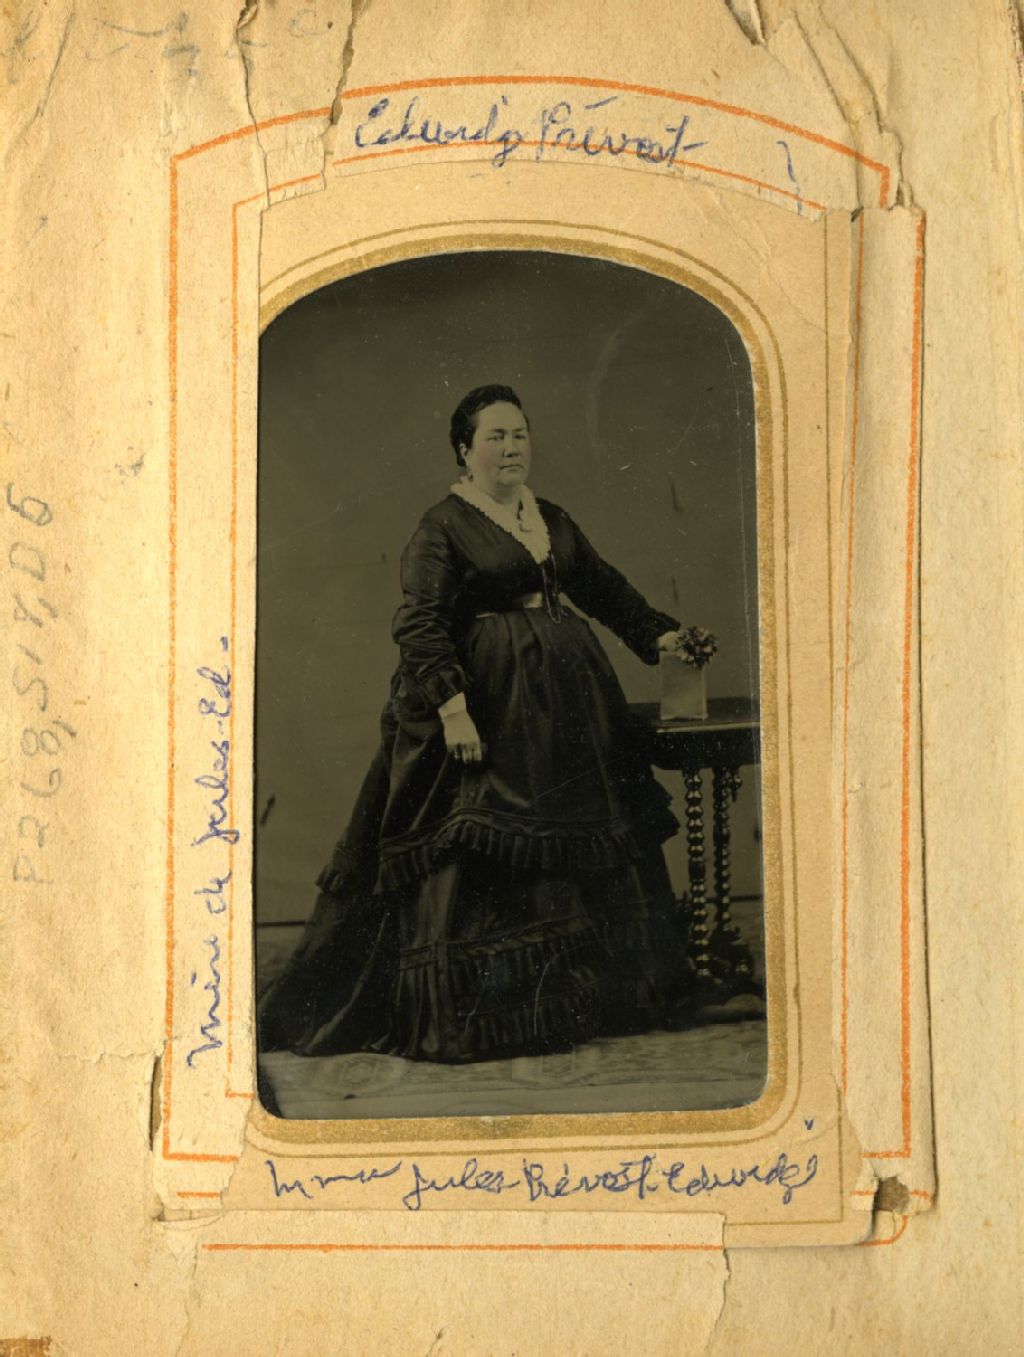 Edwidge Prévost
P268,S1,D6
mère de Jules-Ed.
Mme Jules Prévost-Edwidge